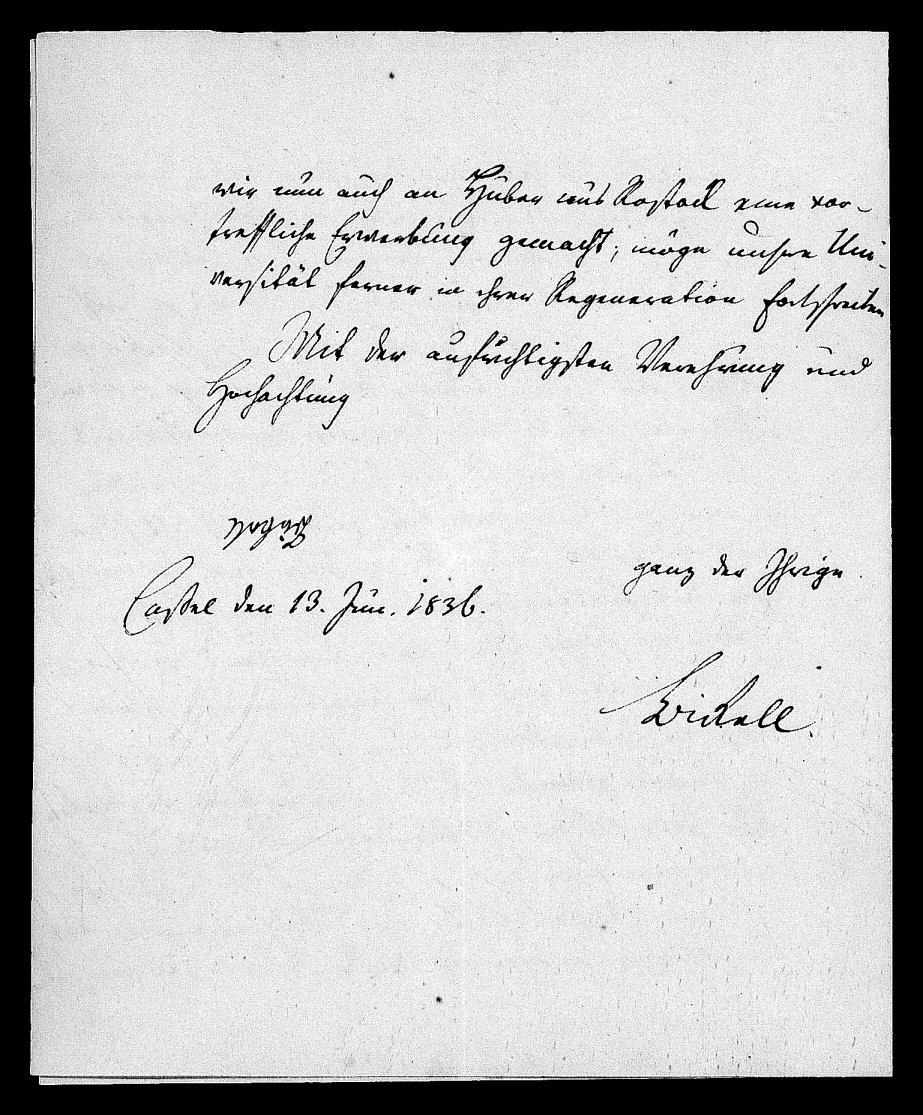 wir nun auch an Huber aus Rostock eine vor-
treffliche Erwerbung gemacht; möge unsre Uni-
versität ferner in ihrer Regeneration fortschreiten
Mit der aufrichtigsten Verehrung und
Hochachtung
ganz der Ihrige
Cassel den 13. Jun. 1836.
Bickell.